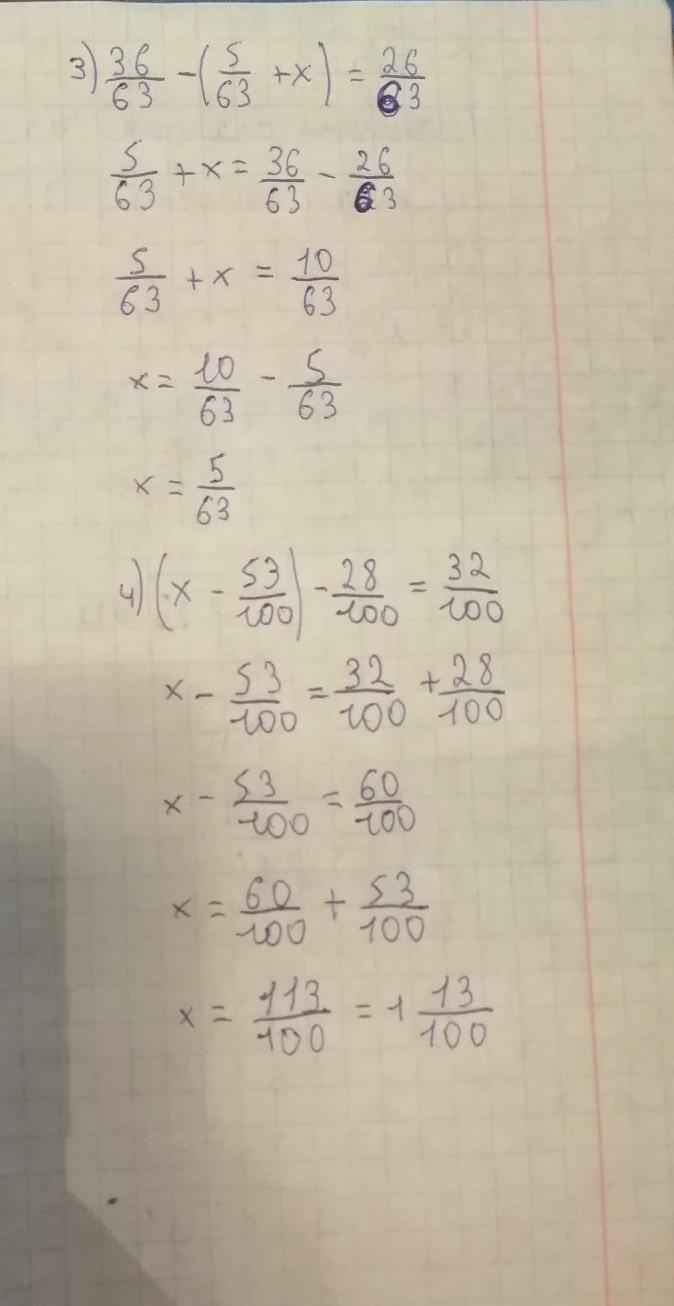 3) 36/63 - (5/63 + x) = 26/63
5/63 + x = 36/63 - 26/63
5/63 + x = 10/63
x = 10/63 - 5/63
x = 5/63
4) (x - 53/100) - 28/100 = 32/100
x - 53/100 = 32/100 + 28/100
x - 53/100 = 60/100
x = 60/100 + 53/100
x = 113/100 = 1 13/100